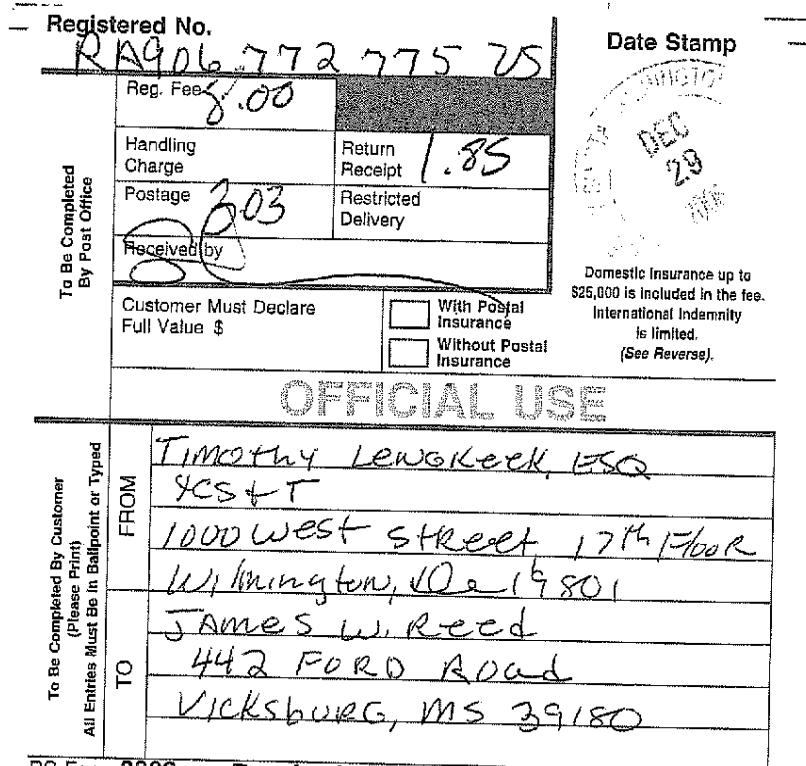 Registered No.
RA906 772 775 US
Date Stamp
To Be Completed
By Post Office
Reg. Fee 8.00
Handling
Charge
Return
Receipt 1.85
Postage
Restricted
Delivery
Received by
DEC
29
Customer Must Declare
Full Value $
With Postal
Insurance
Without Postal
Insurance
Domestic Insurance up to
$25,000 is included in the fee.
International Indemnity
is limited.
(See Reverse).
OFFICIAL USE
To Be Completed By Customer
(Please Print)
All Entries Must Be in Ballpoint or Typed
FROM
Timothy Lengkeek, ESQ
YCS+T
1000 West Street, 17th Floor
Wilmington, De 19801
TO
James W. Reed
442 FORD Road
Vicksburg, MS 39180